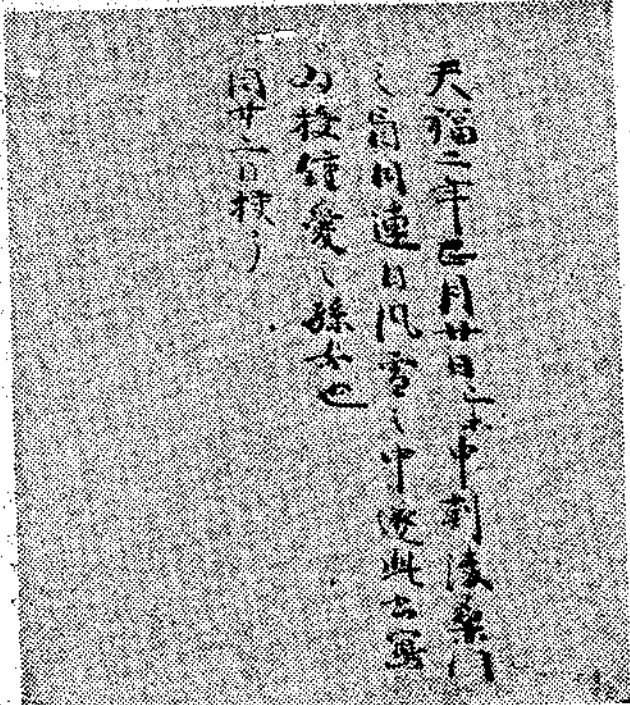 天福二年正月廿日己未申刻凌桑門
之盲目連日風雪之中遂此書寫
為授鍾愛之孫女也
同廿二日校了